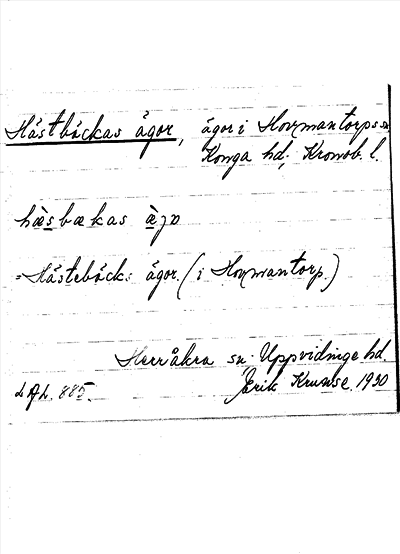 Hästbäckas ägor, ägor i Hovmantorps sn.
Konga hd; Kronob. l.
hæ̀sbækas æ̀jɒ
= Hästebäck: ägor. (i Hovmantorp.)
Herråkra sn. Uppvidinge hd.
LAL. 885. Erik Krunse. 1930